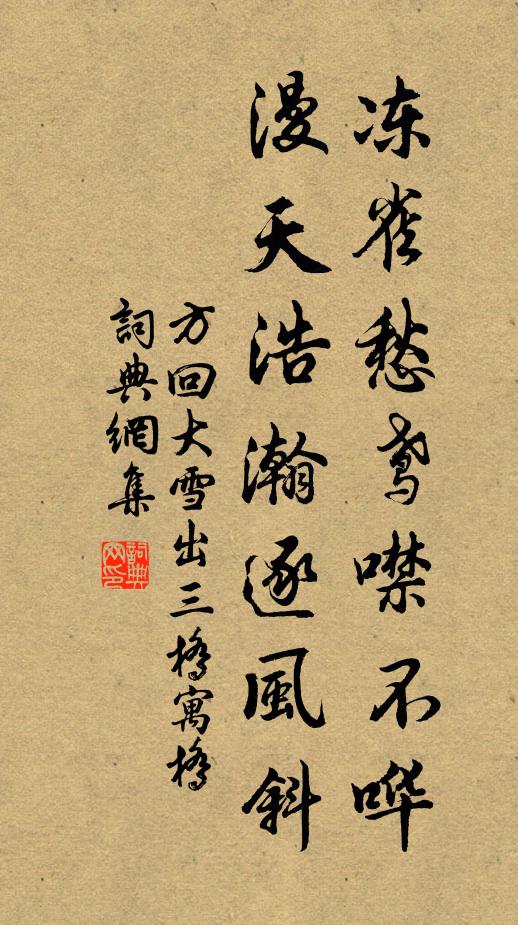 冻雀愁鸢噤不哗
漫天浩瀚逐风斜
方回大雪出三橋寓橋
詞典網集
詞典